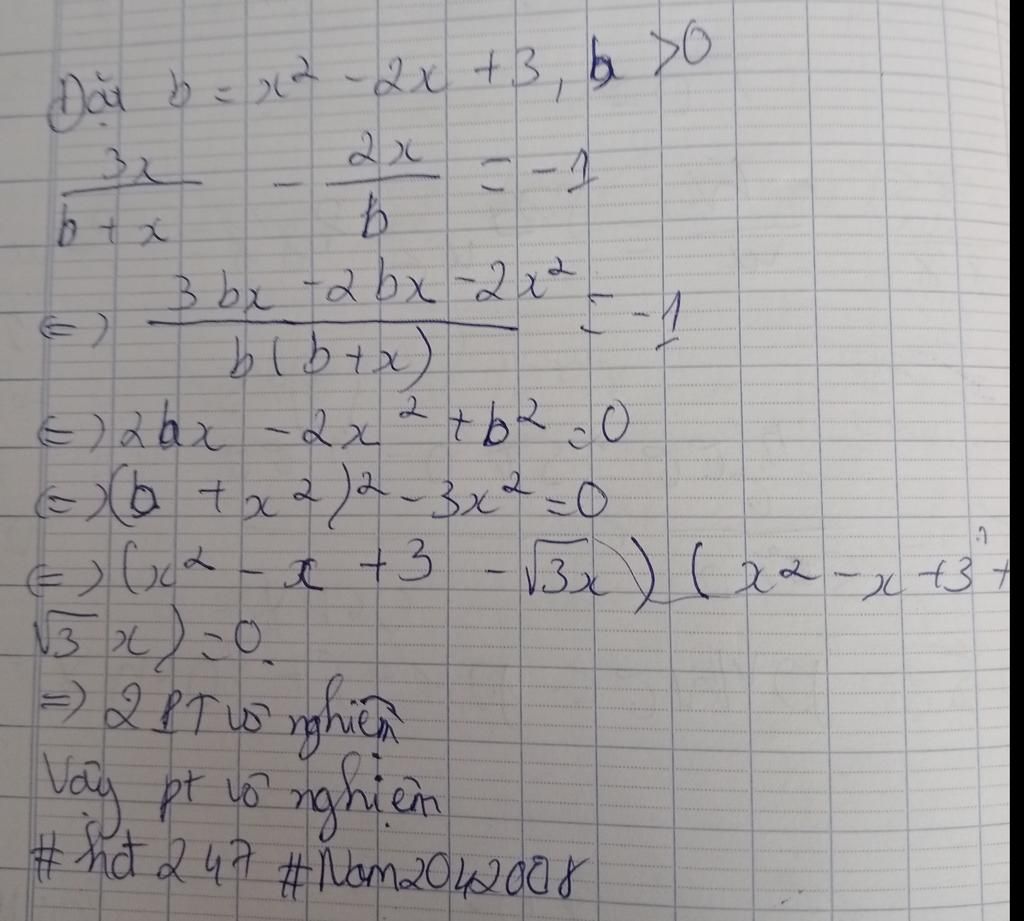 Đặt b = x² - 2x + 3, b > 0
3x/(b + x) - 2x/b = -1
⇔ (3bx - 2bx - 2x²)/(b(b + x)) = -1
⇔ 2bx - 2x² + b² = 0
⇔ (b + x²)² - 3x² = 0
⇔ (x² - x + 3 - √3x) (x² - x + 3 +
√3 x) = 0.
⇒ 2 PT vô nghiệm
Vậy pt vô nghiệm
#hđ247 #Nam2042008